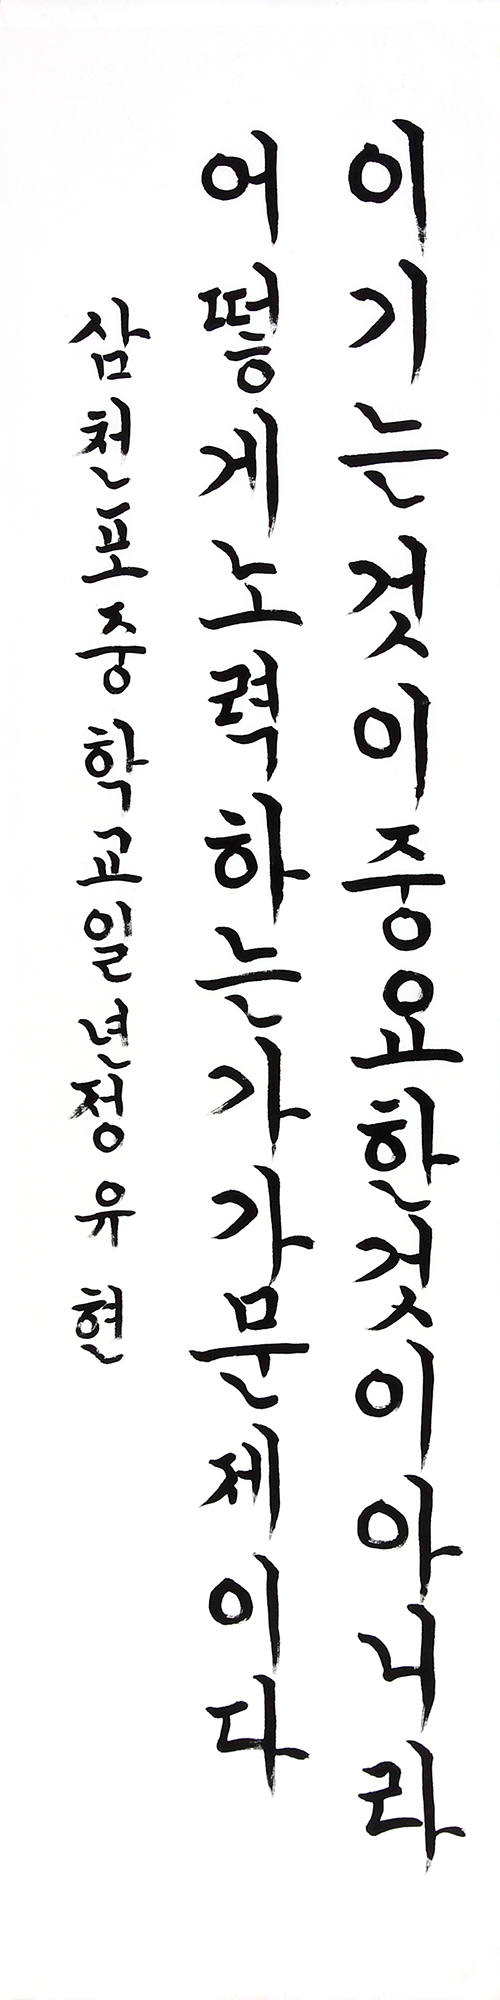 이기는것이중요한것이아니라
어떻게노력하는가가문제이다
삼천포중학교일년정유현